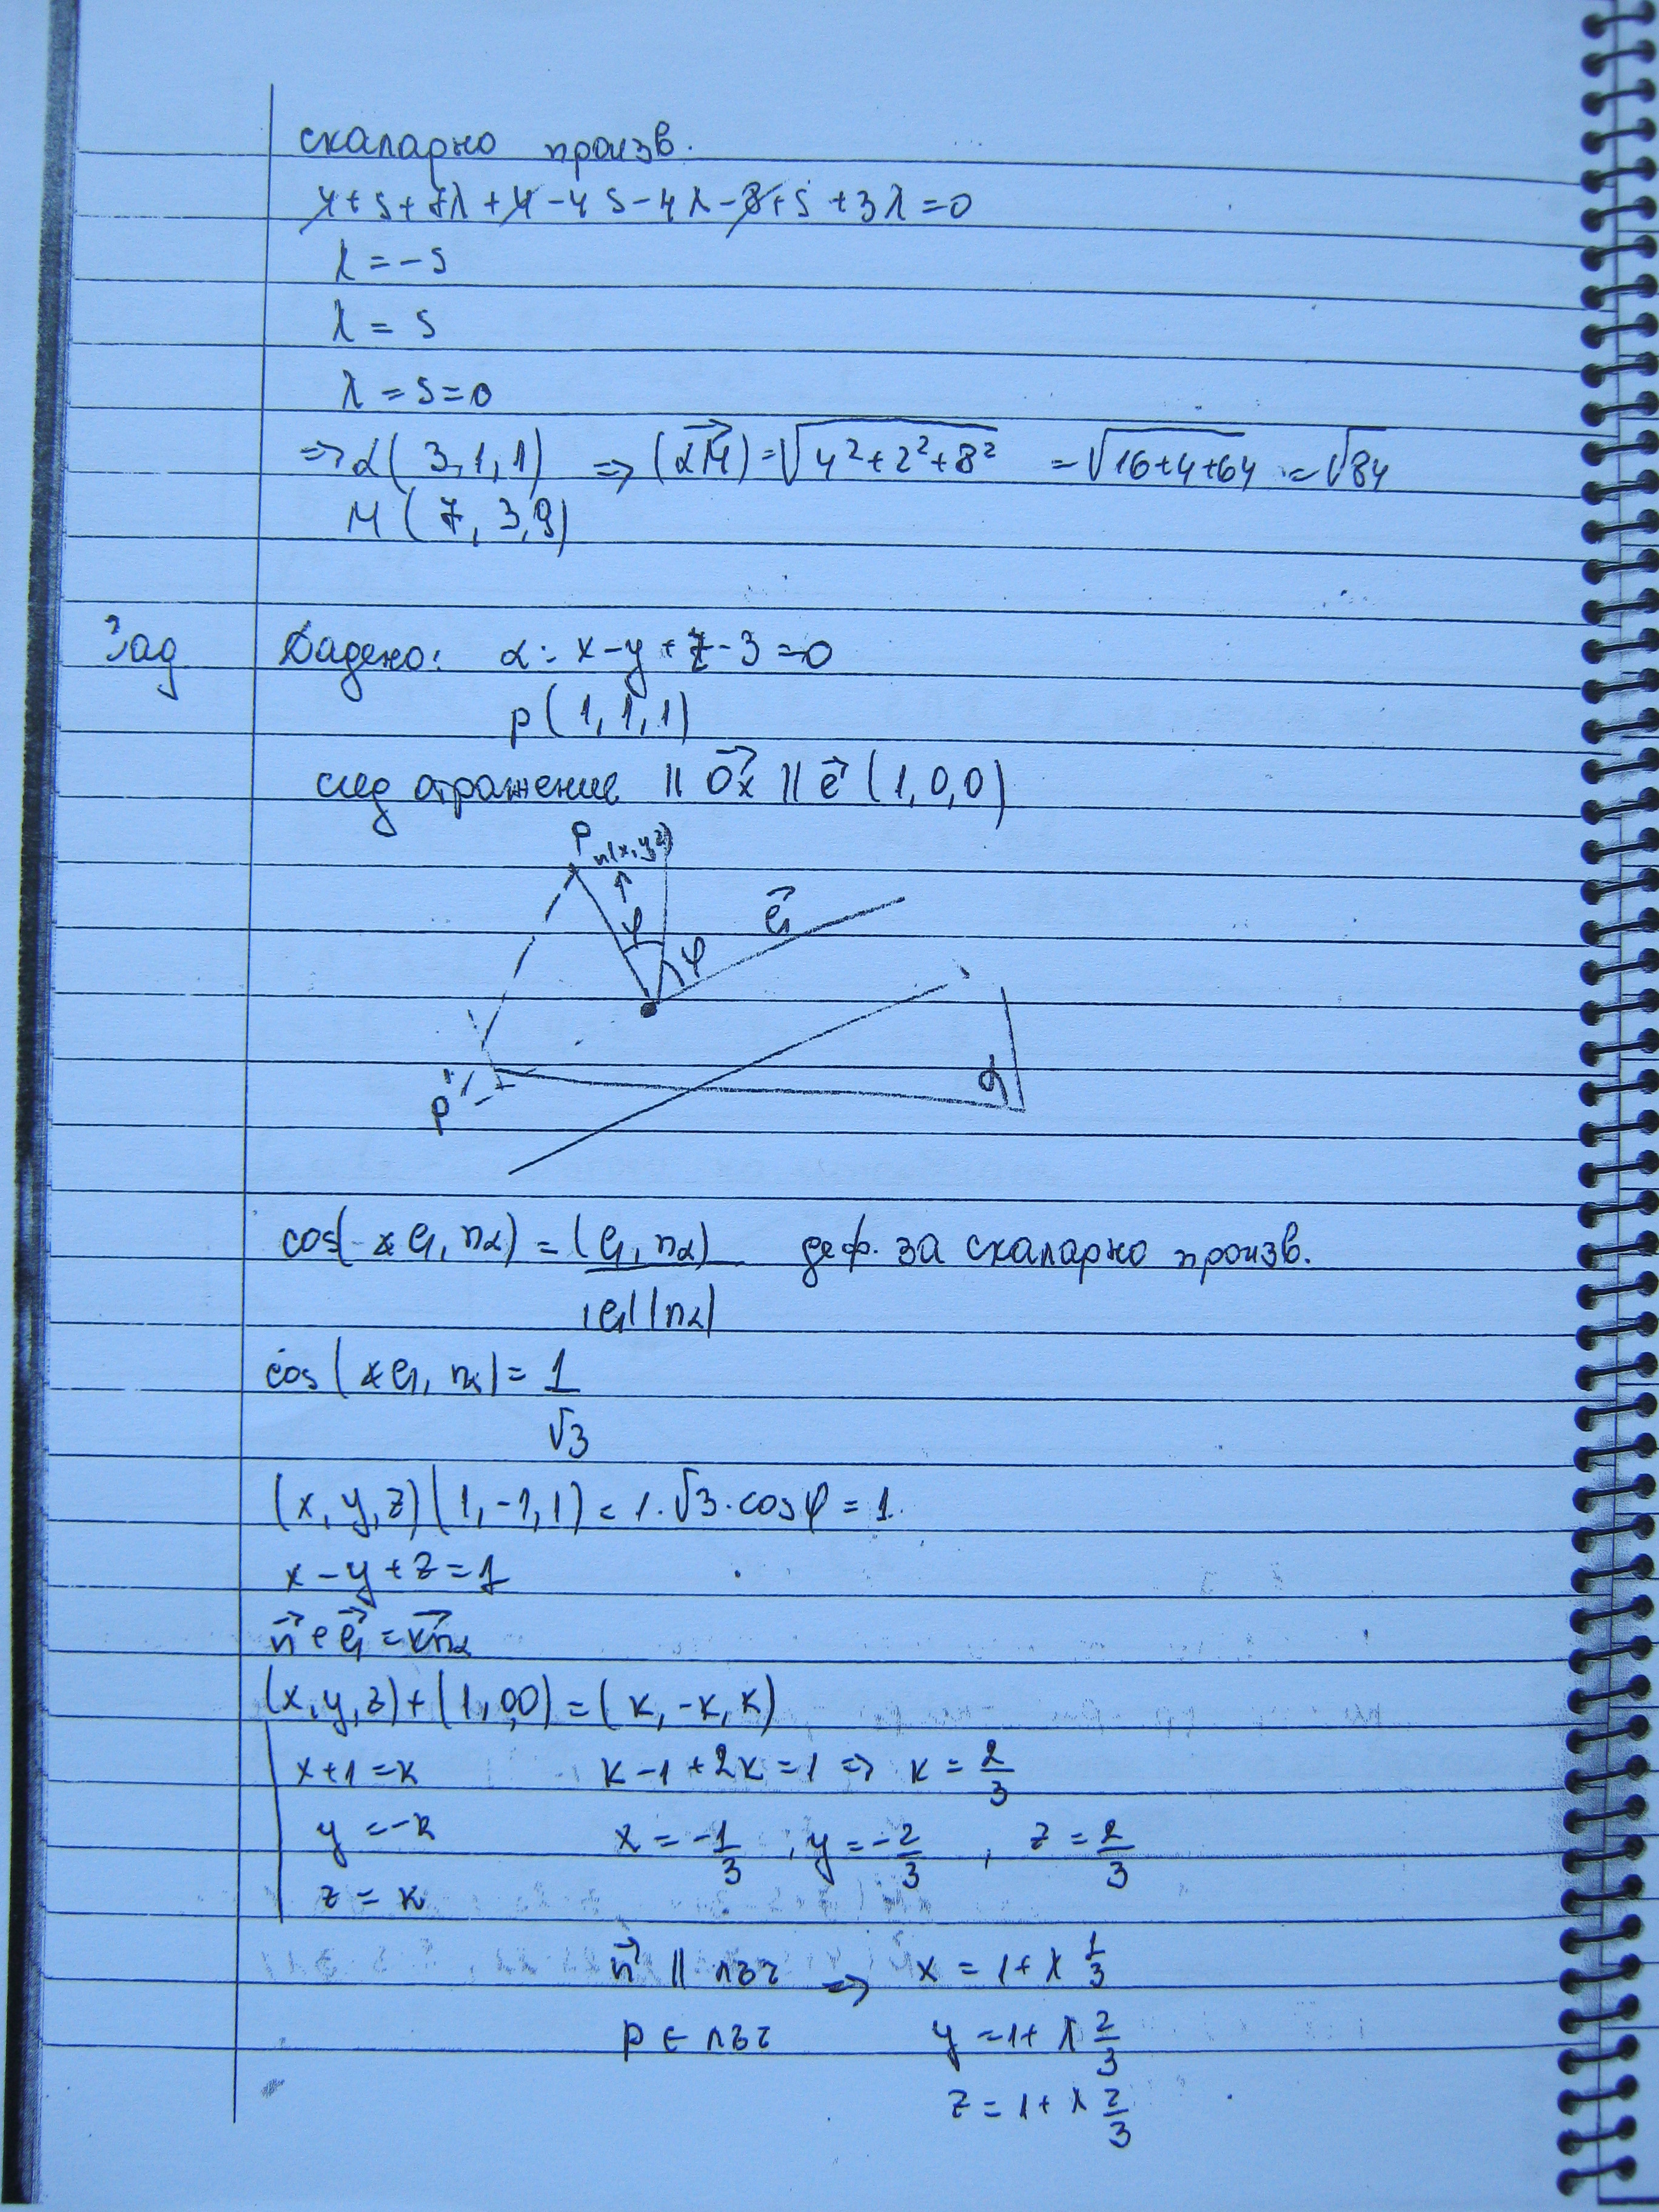 скаларно произв.
4+s+7λ+4-4s-4λ-8+s+3λ=0
λ=-s
λ = s
λ = s=0
=> α( 3,1,1) => (αM) =√4²+2²+8² =√16+4+64 =√84
M ( 7, 3,9)
Зад Дадено: α: x-y+z-3=0
p( 1, 1, 1)
след отражение || Ox || e ( 1,0,0)
P n(x,y,z)
e₁
φ φ
α
p'
cos(∢ e₁, nα) = (e₁, nα) деф. за скаларно произв.
|e₁| |nα|
cos (∢e₁, nα) = 1
√3
(x, y, z) (1, -1, 1) = 1.√3.cosφ = 1.
x-y+z=1
n + e₁ = k nα
(x, y, z)+(1, 0,0) = (k, -k, k)
x+1=k k-1+2k=1 => k = 2/3
y = -k x = -1/3 , y = -2/3 , z = 2/3
z = k
n || лъч => x = 1+ λ 1/3
p ∈ лъч y = 1+ λ 2/3
z = 1+ λ 2/3